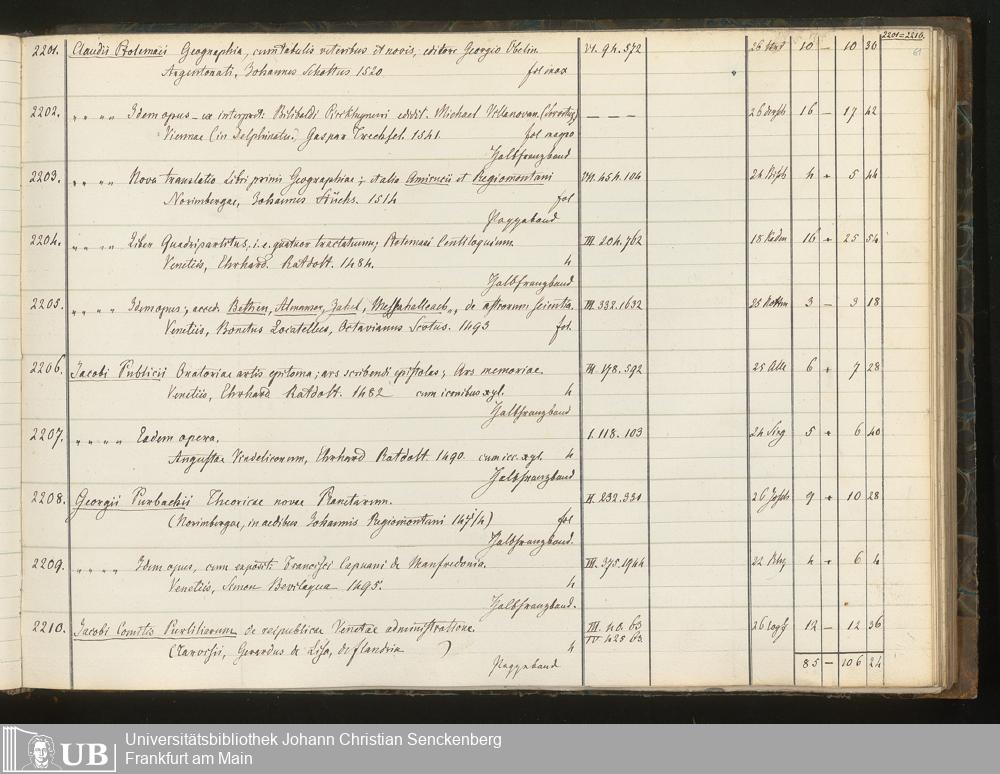 2201=2210.
61
2201. Claudii Ptolemaei Geographia, cum tabulis veteribus et novis, editore Georgio Übelin. VI. 94. 572 10 – 10 30
Argentorati, Johannes Schottus 1520. fol max
2202. " " " " Idem opus – ex interpret: Bilibaldi Pirckhymeri edidit. Michael Villanovan. – – – 16 – 17 42
Viennae (in Delphinatu.) Gaspar Trechsel. 1541. fol
Halbfranzband
2203. " " " " Nova translatio Libri primi Geographiae; et alia Amirucii et Regiomontani 4 5 44
Norimbergae, Johannes Stüchs. 1514 fol
Pappeband
2204. " " " " Liber Quadripartitus, i. e. quatuor tractatuum; Ptolemaei Centiloquium. III. 204. 762 16 25 54
Venetiis, Ehrhard. Ratdolt. 1484. 4
Halbfranzband
2205. " " " " Idem opus; acced. Bethen, Almansor, Zahel, Messahallach, de astrorum scientia. III. 332. 1632 3 – 3 18
Venetiis, Bonetus Locatellus, Octavianus Scotus. 1493 fol.
2206. Jacobi Publicii Oratoriae artis epitoma; ars scribendi epistolas; Ars memoriae. III. 178. 592 6 7 28
Venetiis, Ehrhard Ratdolt. 1482 cum iconibus xyl. 4
Halbfranzband
2207. " " " " Eadem opera. I. 118. 103 5 6 40
Augustae Vindelicorum, Ehrhard Ratdolt. 1490. cum icc. xyl. 4
Halbfranzband
2208. Georgii Purbachii Theoricae novae Planetarum. II. 232. 331 9 10 28
(Norimbergae, in aedibus Johannis Regiomontani fol
Halbfranzband.
2209. " " " " Idem opus, cum exposit Francisci Capuani de Manfredonia. III. 375. 1944 4 6 4
Venetiis, Simon Bevilaqua 1495. 4
Halbfranzband.
2210. Jacobi Comitis Purliliarum de reipublicae Venetae administratione. III. 40. 63 12 – 12 36
IV. 425 63
(Tarvisii, Gerardus de Lisa, de flandria ) 4
Pappeband
85 – 106 24
UB
Universitätsbibliothek Johann Christian Senckenberg
Frankfurt am Main